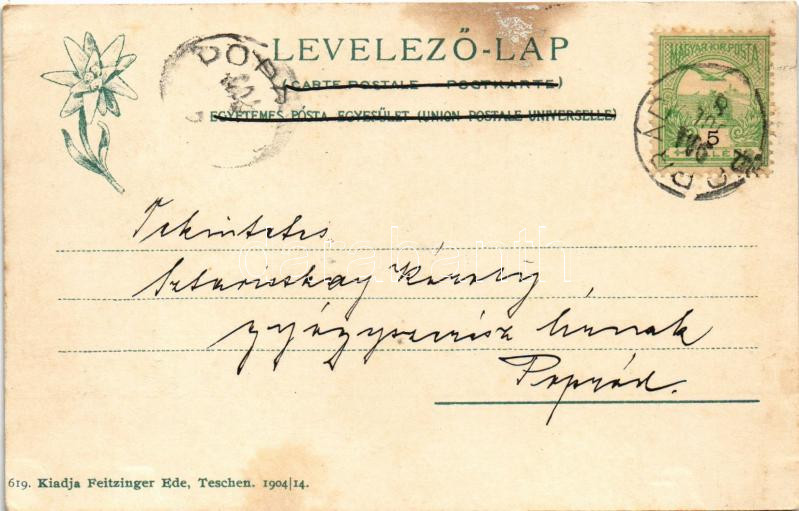 LEVELEZŐ-LAP
(CARTE POSTALE POSTKARTE)
EGYETEMES POSTA EGYESÜLET (UNION POSTALE UNIVERSELLE)
MAGYAR KIR. POSTA
5
Tekintetes
Károly
gyógyszerész úrnak
Poprád.
619. Kiadja Feitzinger Ede, Teschen. 1904|14.